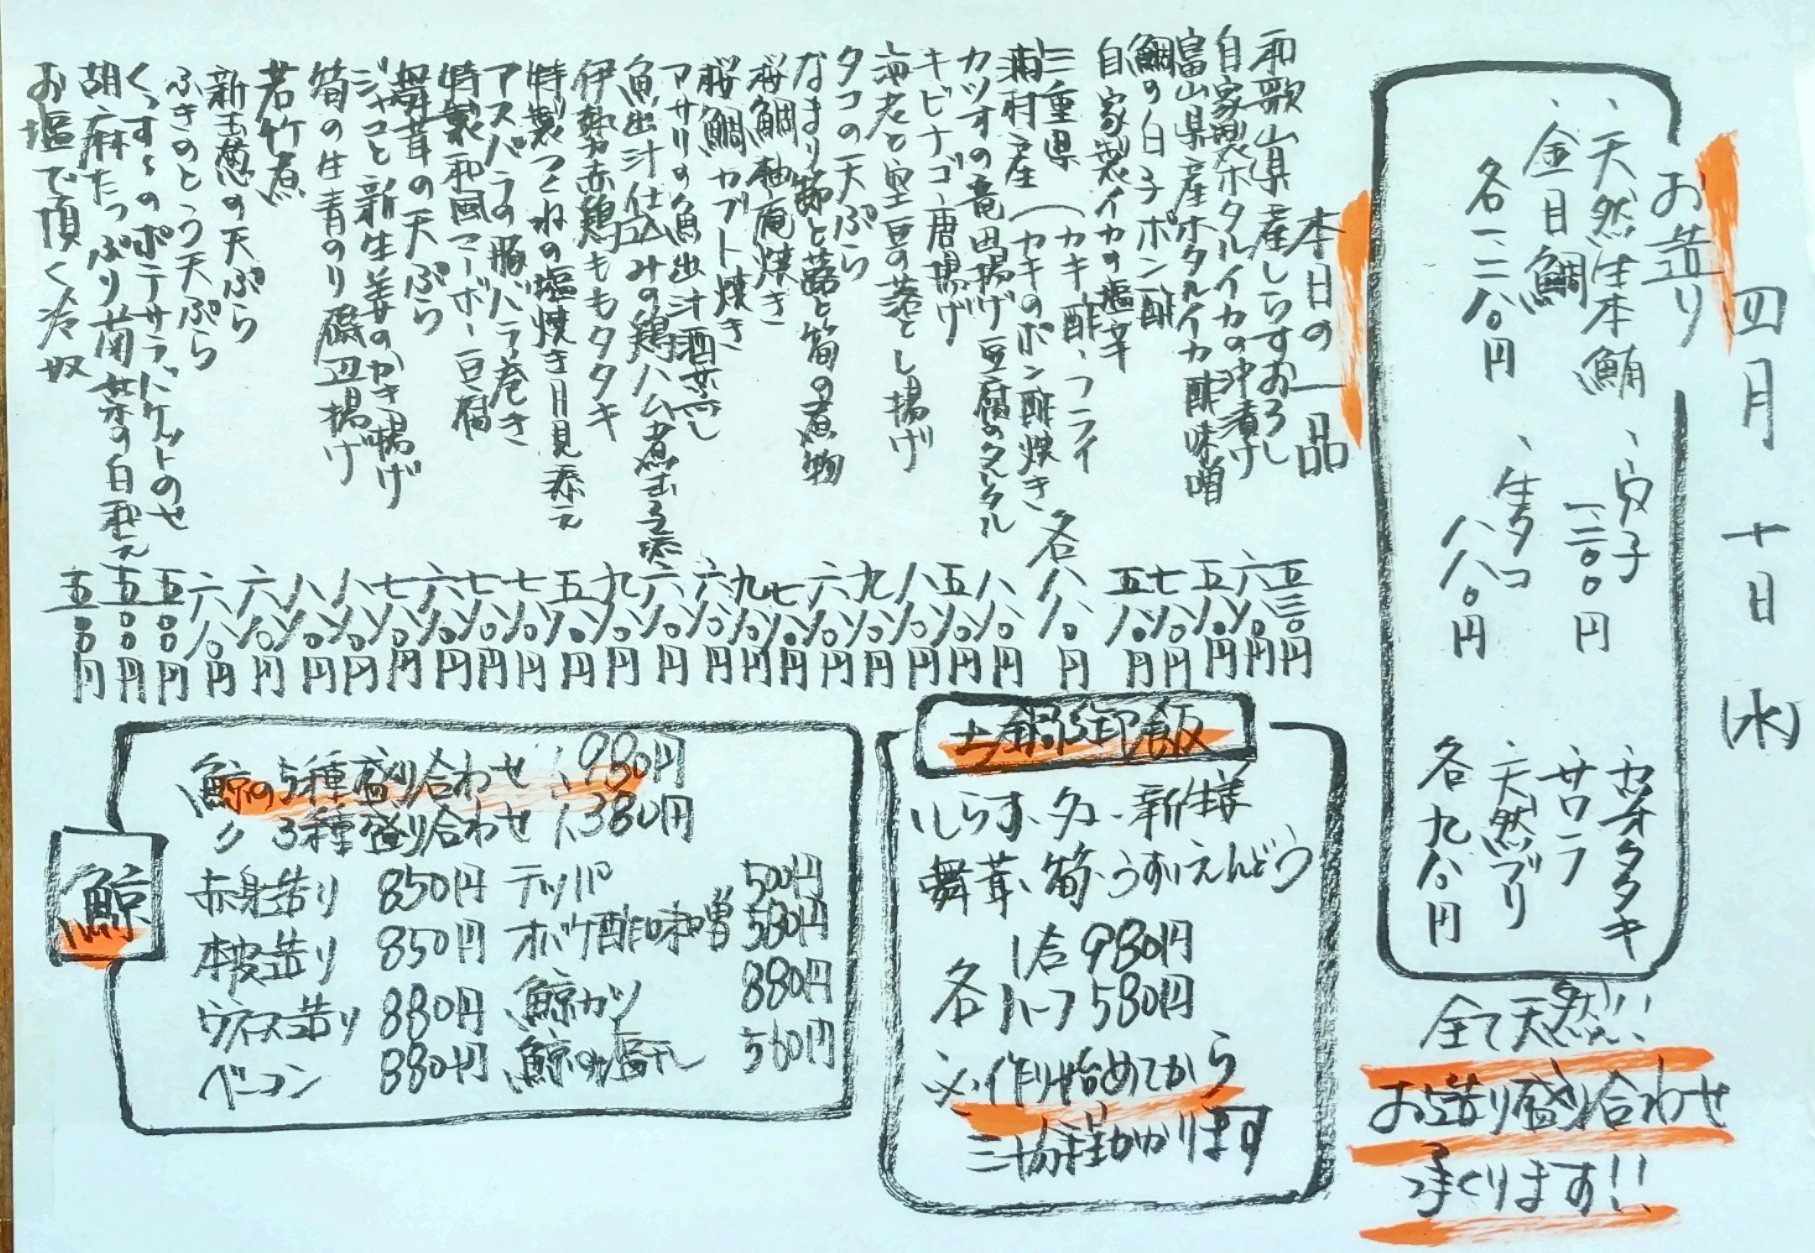 四月十日(水)
お造り
、天然生本鮪
、金目鯛
各一二八〇円
、穴子
一三〇〇円
、生タコ
八八〇円
カツオタタキ
サワラ
天然ブリ
各九八〇円
全て天然!!
お造り盛り合わせ
承ります!!
本日の一品
和歌山県産しらすおろし 五三〇円
自家製ホタルイカの沖漬け 六八〇円
富山県産ホタルイカ酢味噌 五八〇円
鯛の白子ポン酢 七八〇円
自家製イカの塩辛 五八〇円
三重県
浦村産(カキ酢、フライ
カキのポン酢焼き 各八八〇円
カツオの竜田揚げ豆腐のタルタル 八八〇円
キビナゴ唐揚げ 五八〇円
海老と空豆の落とし揚げ 八八〇円
タコの天ぷら 九八〇円
なまり節と蕗と筍の煮物 六八〇円
桜鯛柚庵焼き 七八〇円
桜鯛カブト焼き 九八〇円
アサリの魚出汁酒蒸し 六八〇円
魚出汁仕込みの鶏ハム煮玉子添え 六八〇円
伊勢赤鶏ももタタキ 九八〇円
特製つくねの塩焼き月見添え 五八〇円
アスパラの豚バラ巻き 七八〇円
特製和風マーボー豆腐 七八〇円
舞茸の天ぷら 六八〇円
ジャコと新生姜のかき揚げ 七八〇円
筍の生青のり磯辺揚げ 八八〇円
若竹煮 八八〇円
新玉葱の天ぷら 六八〇円
ふきのとう天ぷら 六八〇円
くんすくのポテサラバケットのせ 五〇〇円
胡麻たっぷり菊菜の白和え 五〇〇円
お塩で頂く冷奴 五〇〇円
土鍋御飯
しらす、タコ、新生姜
舞茸、筍、うすいえんどう
各 1合 980円
ハーフ 580円
※作り始めてから
三十分程かかります
鯨
鯨の5種盛り合わせ 1,980円
〃 3種盛り合わせ 1,380円
赤身造り 850円 テッパ 500円
本皮造り 850円 オバケ酢味噌 580円
ヴィネス造り 880円 鯨カツ 880円
ベーコン 880円 鯨の塩干し 560円